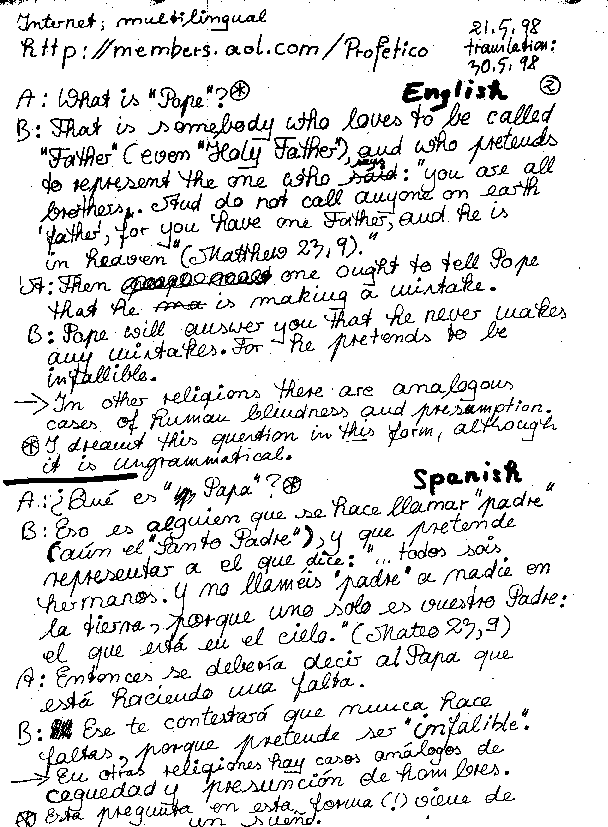 Internet; multilingual
http://members.aol.com/Profetico
21.5.98
translation:
30.5.98
English ②
A: What is "Pope"?⊛
B: That is somebody who loves to be called
"Father" (even "Holy Father"), and who pretends
to represent the one who says: "you are all
brothers. And do not call anyone on earth
'father', for you have one Father, and he is
in heaven" (Matthew 23,9)."
A: Then one ought to tell Pope
that he is making a mistake.
B: Pope will answer you that he never makes
any mistakes. For he pretends to be
infallible.
→ In other religions there are analogous
cases of human blindness and presumption.
⊛ I dreamt this question in this form, although
it is ungrammatical.
Spanish
A: ¿Qué es "Papa"?⊛
B: Eso es alguien que se hace llamar "padre"
(aún el "Santo Padre"), y que pretende
representar a el que dice: "... todos sois
hermanos. y no llaméis "padre" a nadie en
la tierra, porque uno solo es vuestro Padre:
el que está en el cielo." (Mateo 23,9)
A: Entonces se debería decir al Papa que
está haciendo una falta.
B: Ese te contestará que nunca hace
faltas, porque pretende ser "infalible".
→ En otras religiones hay casos análogos de
ceguedad y presunción de hombres.
⊛ Esta pregunta en esta forma (!) viene de
un sueño.